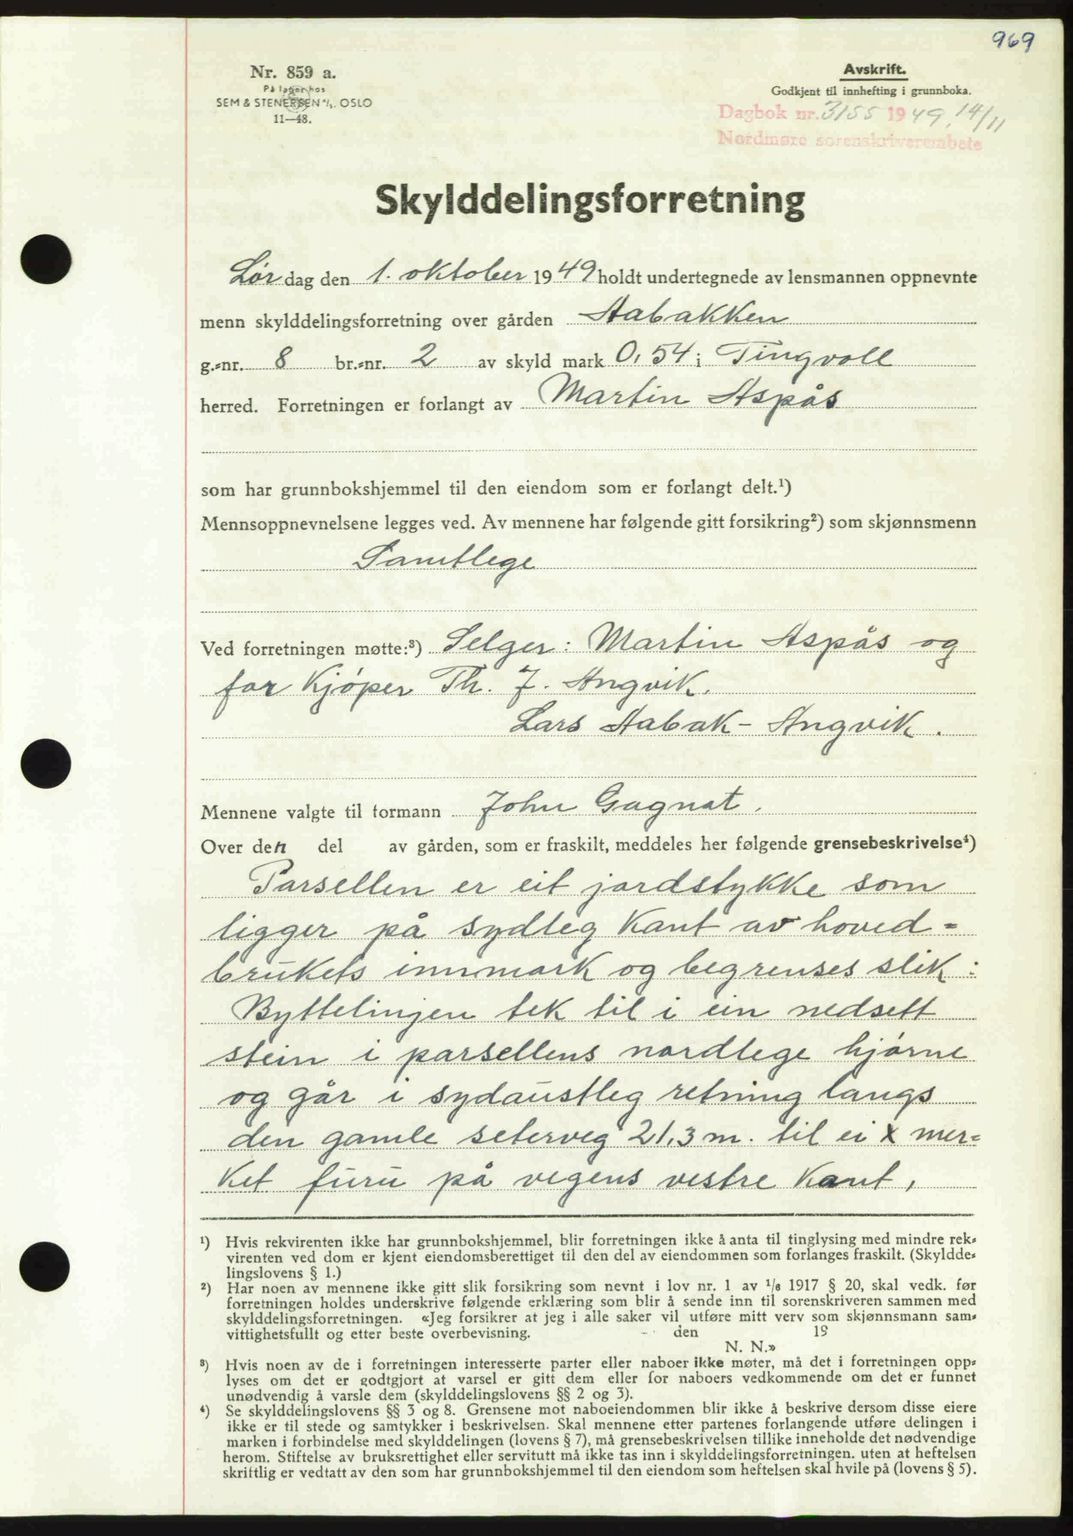 969
Nr. 859 a.
På lager hos
SEM & STENERSEN A/S. OSLO
11—48.
Avskrift.
Godkjent til innhefting i grunnboka.
Dagbok nr. 3155 1949, 14/11
Nordmøre sorenskriverembete
Skylddelingsforretning
Lørdag den 1. oktober 1949 holdt undertegnede av lensmannen oppnevnte
menn skylddelingsforretning over gården Aabakken
g.-nr. 8 br.-nr. 2 av skyld mark 0,54 i Tingvoll
herred. Forretningen er forlangt av Martin Aspås
som har grunnbokshjemmel til den eiendom som er forlangt delt.¹)
Mennsoppnevnelsene legges ved. Av mennene har følgende gitt forsikring²) som skjønnsmenn
Samtlege
Ved forretningen møtte:³) Selger: Martin Aspås og
for Kjøper Th. J. Angvik.
Lars Aabak - Angvik.
Mennene valgte til formann John Gagnat.
Over den del av gården, som er fraskilt, meddeles her følgende grensebeskrivelse⁴)
Parsellen er eit jordstykke som
ligger på sydleg Kant av hoved=
brukets innmark og begrenses slik:
Byttelinjen tek til i ein nedsett
stein i parsellens nordlege hjørne
og går i sydaustleg retning langs
den gamle seterveg 21,3 m. til ei x mer=
ket furu på vegens vestre Kant,
¹) Hvis rekvirenten ikke har grunnbokshjemmel, blir forretningen ikke å anta til tinglysing med mindre rek-
virenten ved dom er kjent eiendomsberettiget til den del av eiendommen som forlanges fraskilt. (Skyldde-
lingslovens § 1.)
²) Har noen av mennene ikke gitt slik forsikring som nevnt i lov nr. 1 av 1/6 1917 § 20, skal vedk. før
forretningen holdes underskrive følgende erklæring som blir å sende inn til sorenskriveren sammen med
skylddelingsforretningen. «Jeg forsikrer at jeg i alle saker vil utføre mitt verv som skjønnsmann sam-
vittighetsfullt og etter beste overbevisning. den 19
N. N.»
³) Hvis noen av de i forretningen interesserte parter eller naboer ikke møter, må det i forretningen opp-
lyses om det er godtgjort at varsel er gitt dem eller for naboers vedkommende om det er funnet
unødvendig å varsle dem (skylddelingslovens §§ 2 og 3).
⁴) Se skylddelingslovens §§ 3 og 8. Grensene mot naboeiendommen blir ikke å beskrive dersom disse eiere
ikke er til stede og samtykker i beskrivelsen. Skal mennene etter partenes forlangende utføre delingen i
marken i forbindelse med skylddelingen (lovens § 7), må grensebeskrivelsen tillike inneholde det nødvendige
herom. Stiftelse av bruksrettighet eller servitutt må ikke tas inn i skylddelingsforretningen. uten at heftelsen
skriftlig er vedtatt av den som har grunnbokshjemmel til den eiendom som heftelsen skal hvile på (lovens § 5).